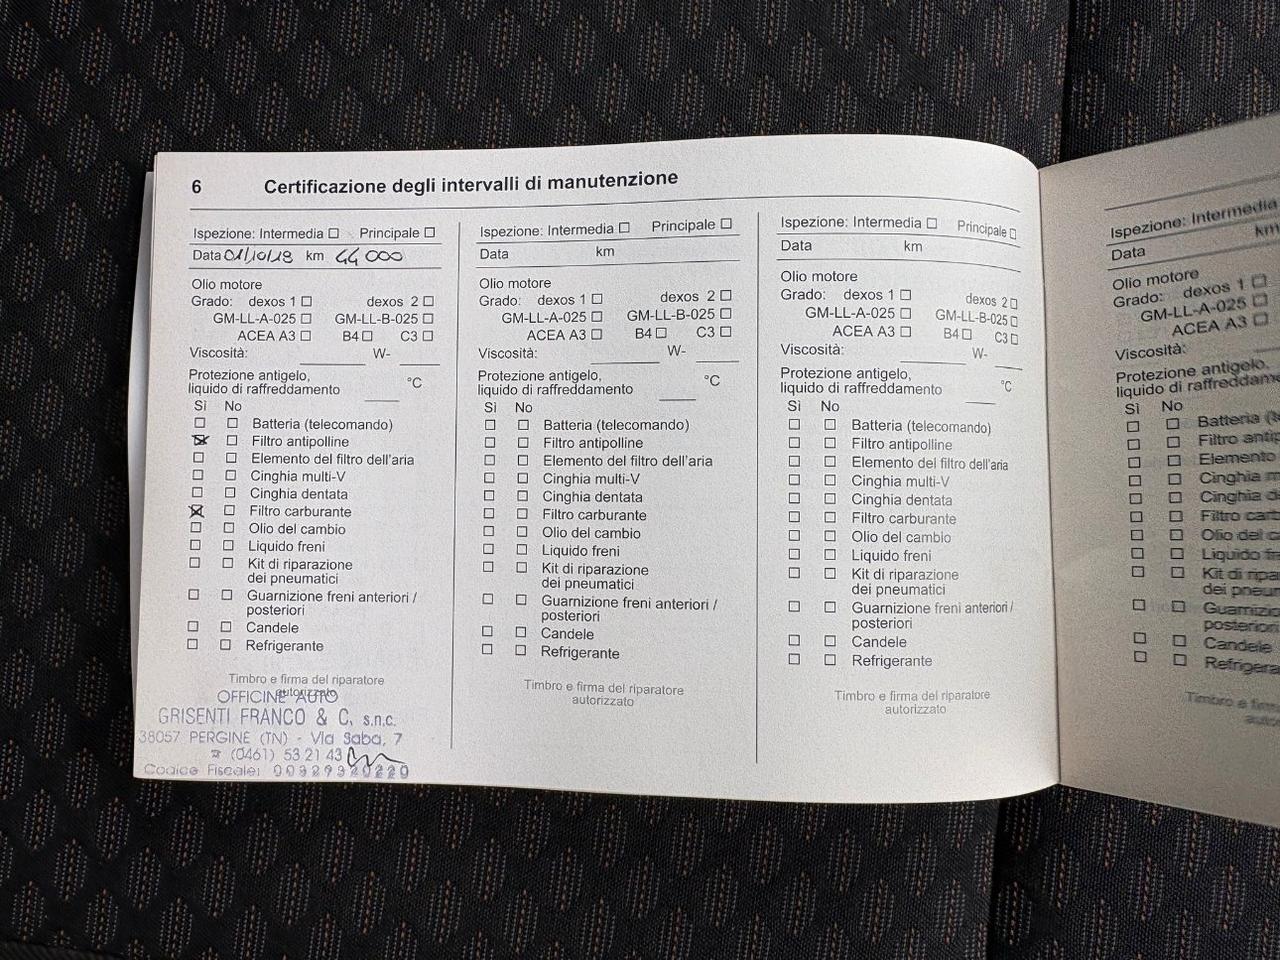 6 Certificazione degli intervalli di manutenzione
Ispezione: Intermedia ☐ Principale ☐
Data 01/10/18 km 44 000
Olio motore
Grado: dexos 1 ☐ dexos 2 ☐
GM-LL-A-025 ☐ GM-LL-B-025 ☐
ACEA A3 ☐ B4 ☐ C3 ☐
Viscosità: ____ W- ____
Protezione antigelo,
liquido di raffreddamento ____ °C
Sì No
☐ ☐ Batteria (telecomando)
☒ ☐ Filtro antipolline
☐ ☐ Elemento del filtro dell'aria
☐ ☐ Cinghia multi-V
☐ ☐ Cinghia dentata
☒ ☐ Filtro carburante
☐ ☐ Olio del cambio
☐ ☐ Liquido freni
☐ ☐ Kit di riparazione
dei pneumatici
☐ ☐ Guarnizione freni anteriori /
posteriori
☐ ☐ Candele
☐ ☐ Refrigerante
Timbro e firma del riparatore
autorizzato
OFFICINE AUTO
GRISENTI FRANCO & C. s.n.c.
38057 PERGINE (TN) - Via Saba, 7
☎ (0461) 53 21 43
Codice Fiscale: 00329320220
Ispezione: Intermedia ☐ Principale ☐
Data km
Olio motore
Grado: dexos 1 ☐ dexos 2 ☐
GM-LL-A-025 ☐ GM-LL-B-025 ☐
ACEA A3 ☐ B4 ☐ C3 ☐
Viscosità: ____ W- ____
Protezione antigelo,
liquido di raffreddamento ____ °C
Sì No
☐ ☐ Batteria (telecomando)
☐ ☐ Filtro antipolline
☐ ☐ Elemento del filtro dell'aria
☐ ☐ Cinghia multi-V
☐ ☐ Cinghia dentata
☐ ☐ Filtro carburante
☐ ☐ Olio del cambio
☐ ☐ Liquido freni
☐ ☐ Kit di riparazione
dei pneumatici
☐ ☐ Guarnizione freni anteriori /
posteriori
☐ ☐ Candele
☐ ☐ Refrigerante
Timbro e firma del riparatore
autorizzato
Ispezione: Intermedia ☐ Principale ☐
Data km
Olio motore
Grado: dexos 1 ☐ dexos 2 ☐
GM-LL-A-025 ☐ GM-LL-B-025 ☐
ACEA A3 ☐ B4 ☐ C3 ☐
Viscosità: ____ W- ____
Protezione antigelo,
liquido di raffreddamento ____ °C
Sì No
☐ ☐ Batteria (telecomando)
☐ ☐ Filtro antipolline
☐ ☐ Elemento del filtro dell'aria
☐ ☐ Cinghia multi-V
☐ ☐ Cinghia dentata
☐ ☐ Filtro carburante
☐ ☐ Olio del cambio
☐ ☐ Liquido freni
☐ ☐ Kit di riparazione
dei pneumatici
☐ ☐ Guarnizione freni anteriori /
posteriori
☐ ☐ Candele
☐ ☐ Refrigerante
Timbro e firma del riparatore
autorizzato
Ispezione: Intermedia
Data km
Olio motore
Grado: dexos 1 ☐
GM-LL-A-025 ☐
ACEA A3 ☐
Viscosità:
Protezione antigelo,
liquido di raffreddame
Sì No
☐ ☐ Batteria (t
☐ ☐ Filtro antip
☐ ☐ Elemento
☐ ☐ Cinghia m
☐ ☐ Cinghia d
☐ ☐ Filtro carb
☐ ☐ Olio del c
☐ ☐ Liquido fre
☐ ☐ Kit di ripa
dei pneum
☐ ☐ Guarnizio
posteriori
☐ ☐ Candele
☐ ☐ Refrigera
Timbro e firm
auto